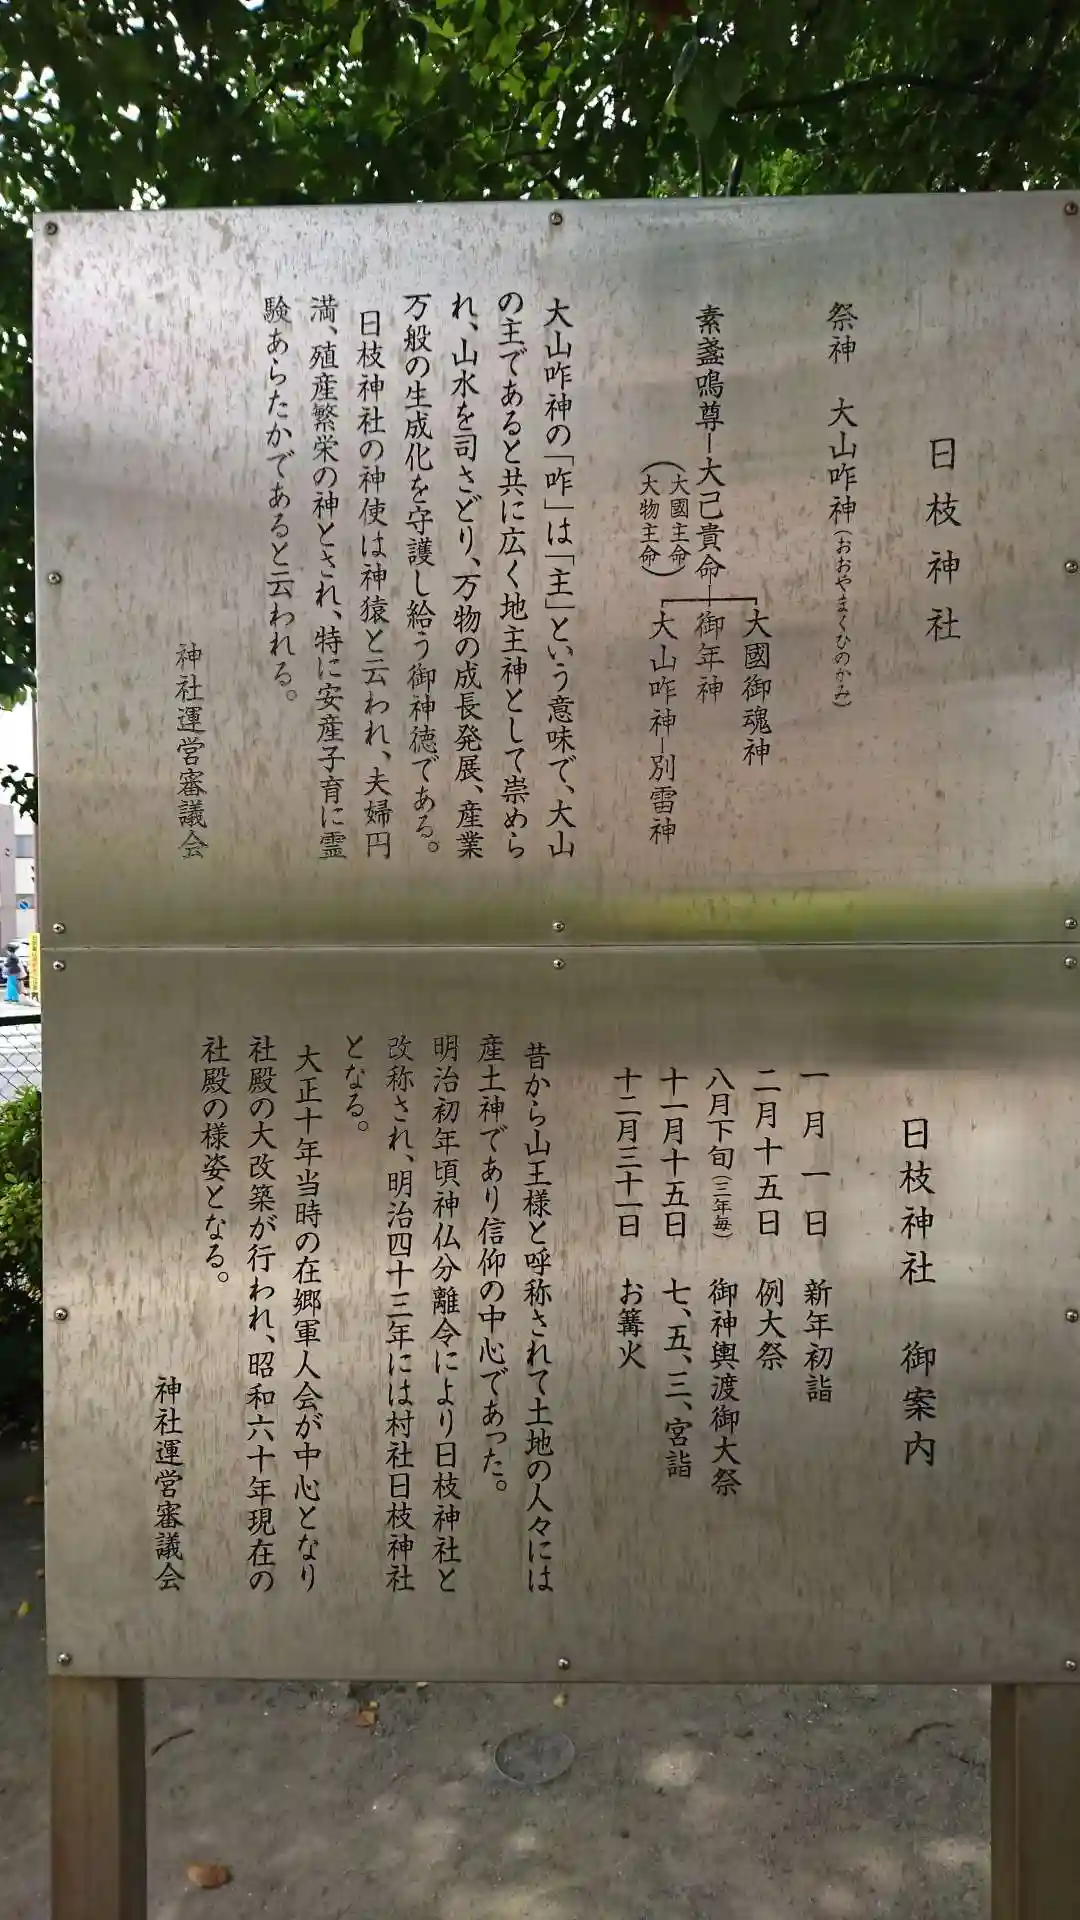 日枝神社
祭神　大山咋神(おおやまくひのかみ)
大國御魂神
素盞鳴尊―大己貴命―御年神
(大國主命)
(大物主命)
大山咋神―別雷神
大山咋神の「咋」は「主」という意味で、大山
の主であると共に広く地主神として崇めら
れ、山水を司さどり、万物の成長発展、産業
万般の生成化を守護し給う御神徳である。
日枝神社の神使は神猿と云われ、夫婦円
満、殖産繁栄の神とされ、特に安産子育に霊
験あらたかであると云われる。
神社運営審議会
日枝神社　御案内
一月一日　新年初詣
二月十五日　例大祭
八月下旬(三年毎)　御神輿渡御大祭
十一月十五日　七、五、三、宮詣
十二月三十一日　お篝火
昔から山王様と呼称されて土地の人々には
産土神であり信仰の中心であった。
明治初年頃神仏分離令により日枝神社と
改称され、明治四十三年には村社日枝神社
となる。
大正十年当時の在郷軍人会が中心となり
社殿の大改築が行われ、昭和六十年現在の
社殿の様姿となる。
神社運営審議会